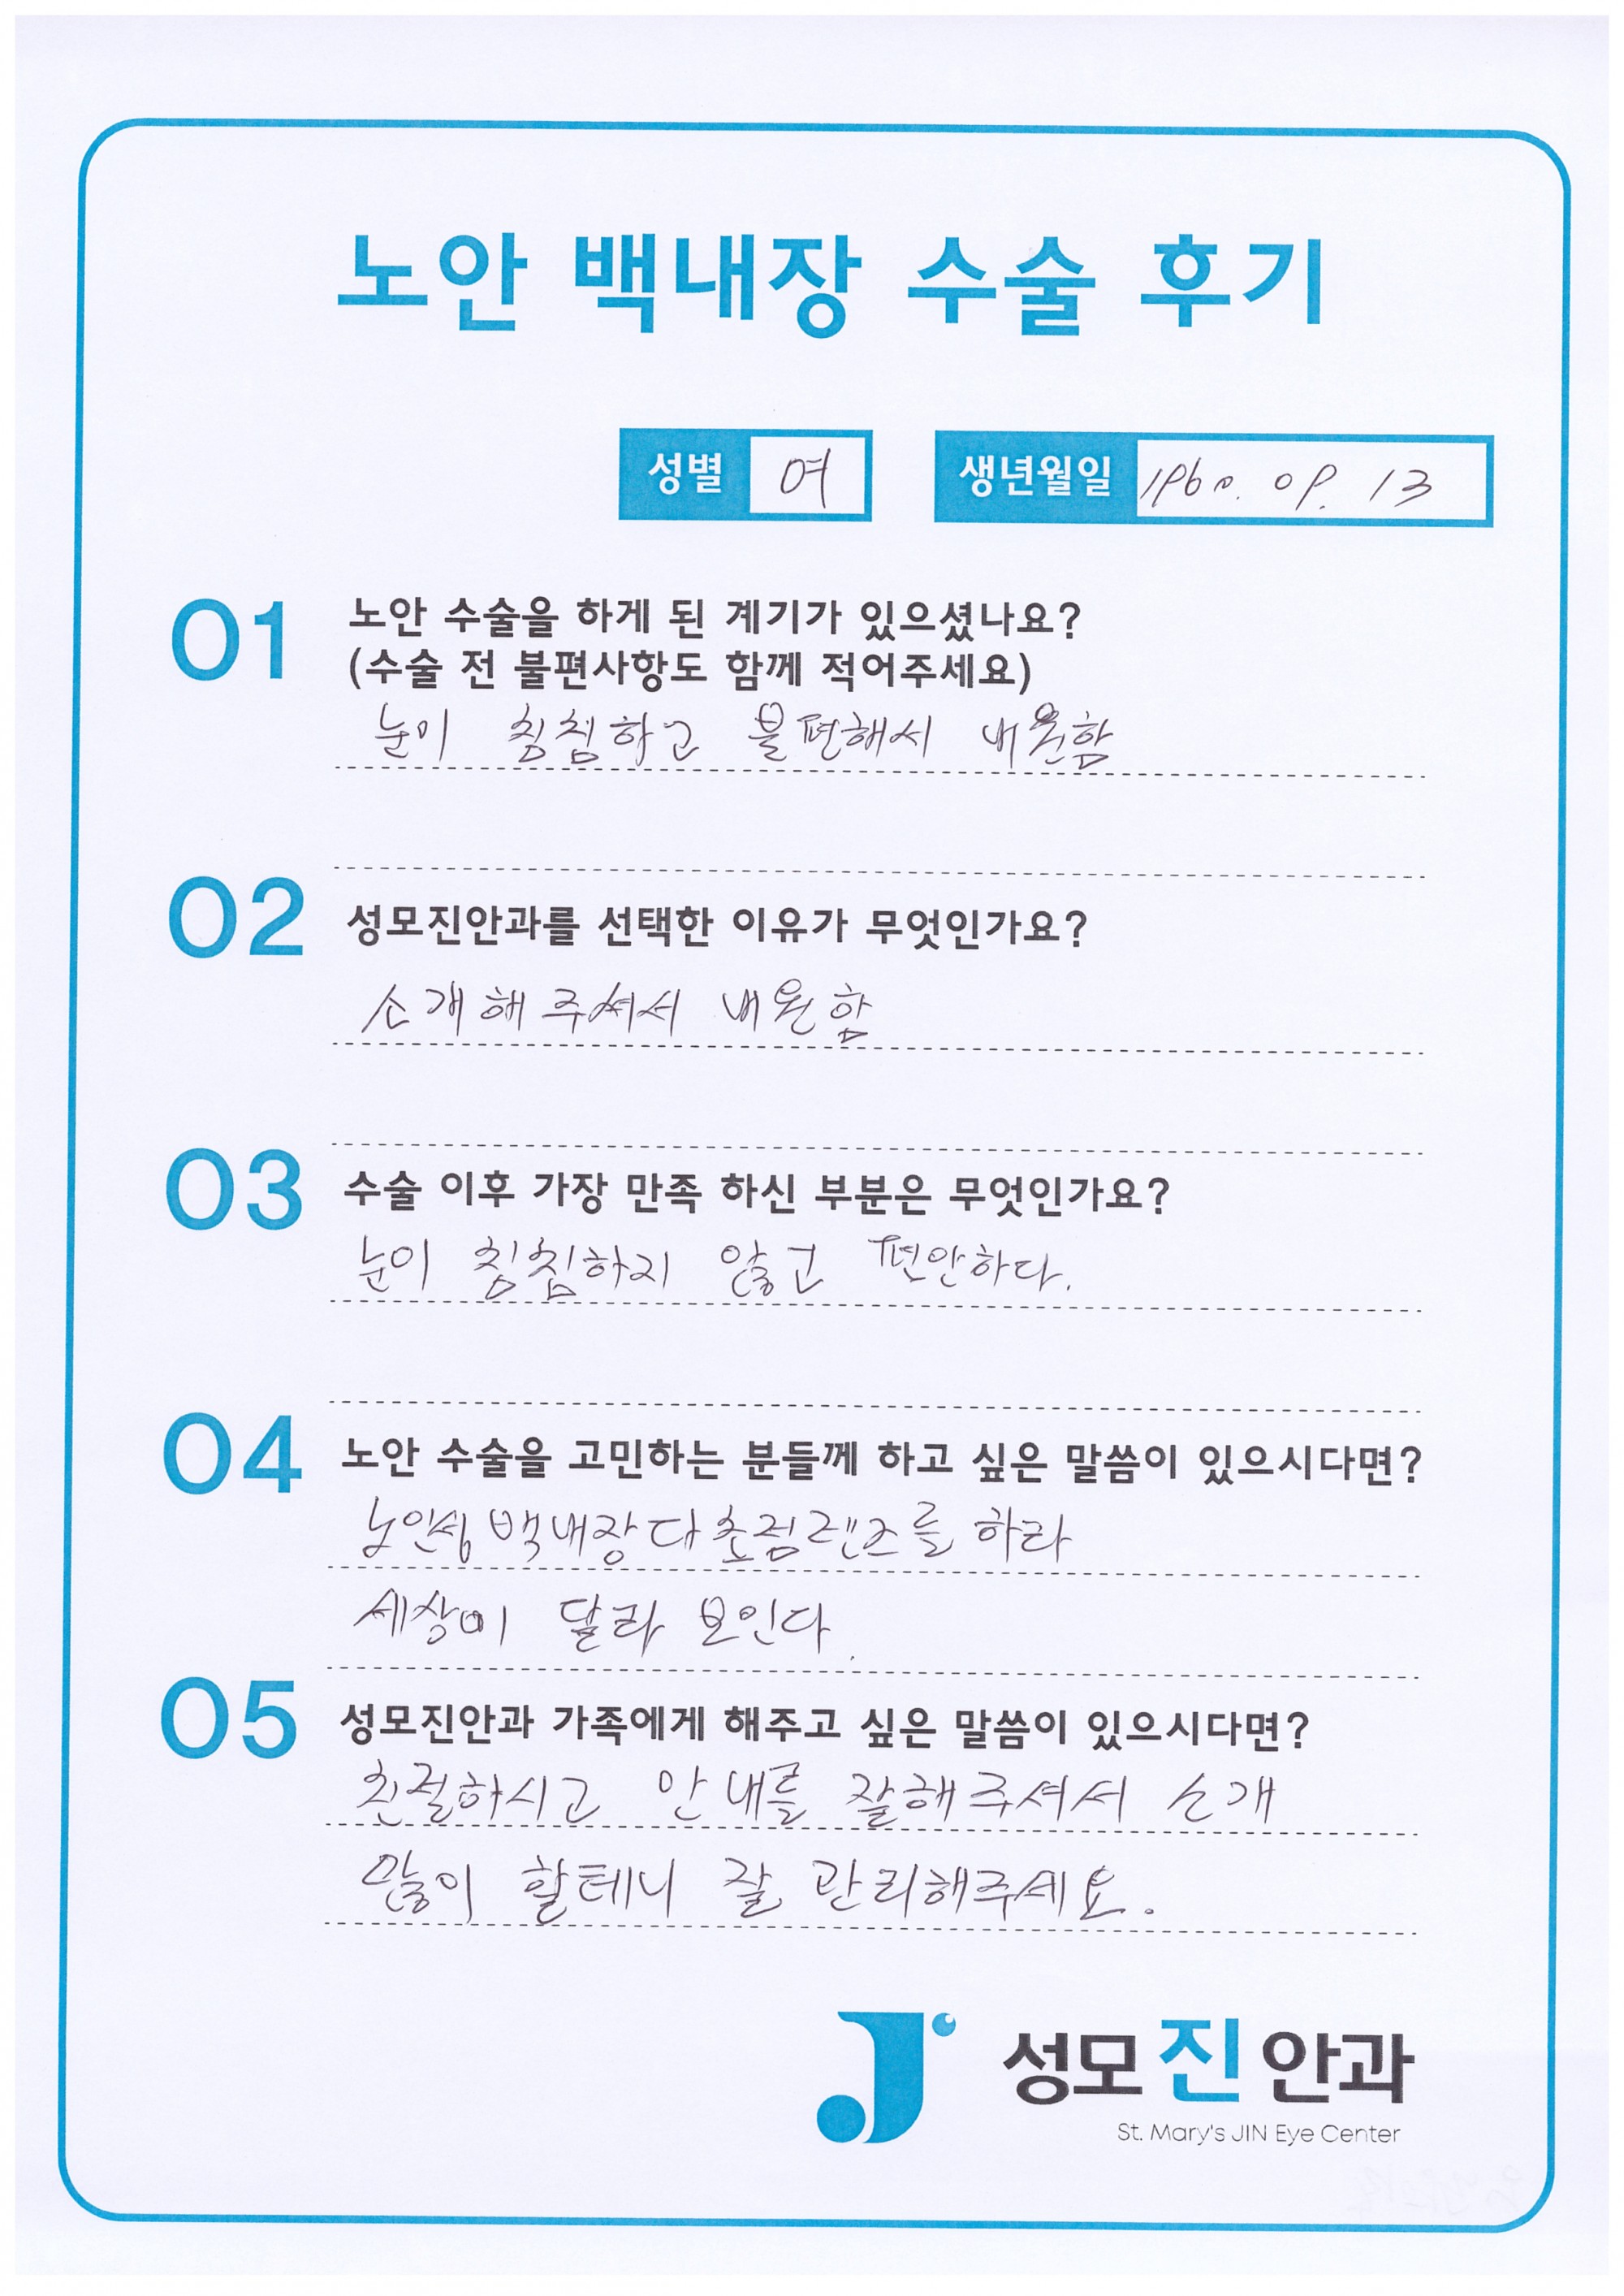 노안 백내장 수술 후기
성별 여 생년월일 1960. 09. 13
01 노안 수술을 하게 된 계기가 있으셨나요?
(수술 전 불편사항도 함께 적어주세요)
눈이 침침하고 불편해서 내원함
02 성모진안과를 선택한 이유가 무엇인가요?
소개해주셔서 내원함
03 수술 이후 가장 만족 하신 부분은 무엇인가요?
눈이 침침하지 않고 편안하다.
04 노안 수술을 고민하는 분들께 하고 싶은 말씀이 있으시다면?
백내장다초점렌즈를 하라
세상이 달라 보인다.
05 성모진안과 가족에게 해주고 싶은 말씀이 있으시다면?
친절하시고 안내를 잘해주셔서 소개
많이 할테니 잘 관리해주세요.
성모진안과
St. Mary's JIN Eye Center